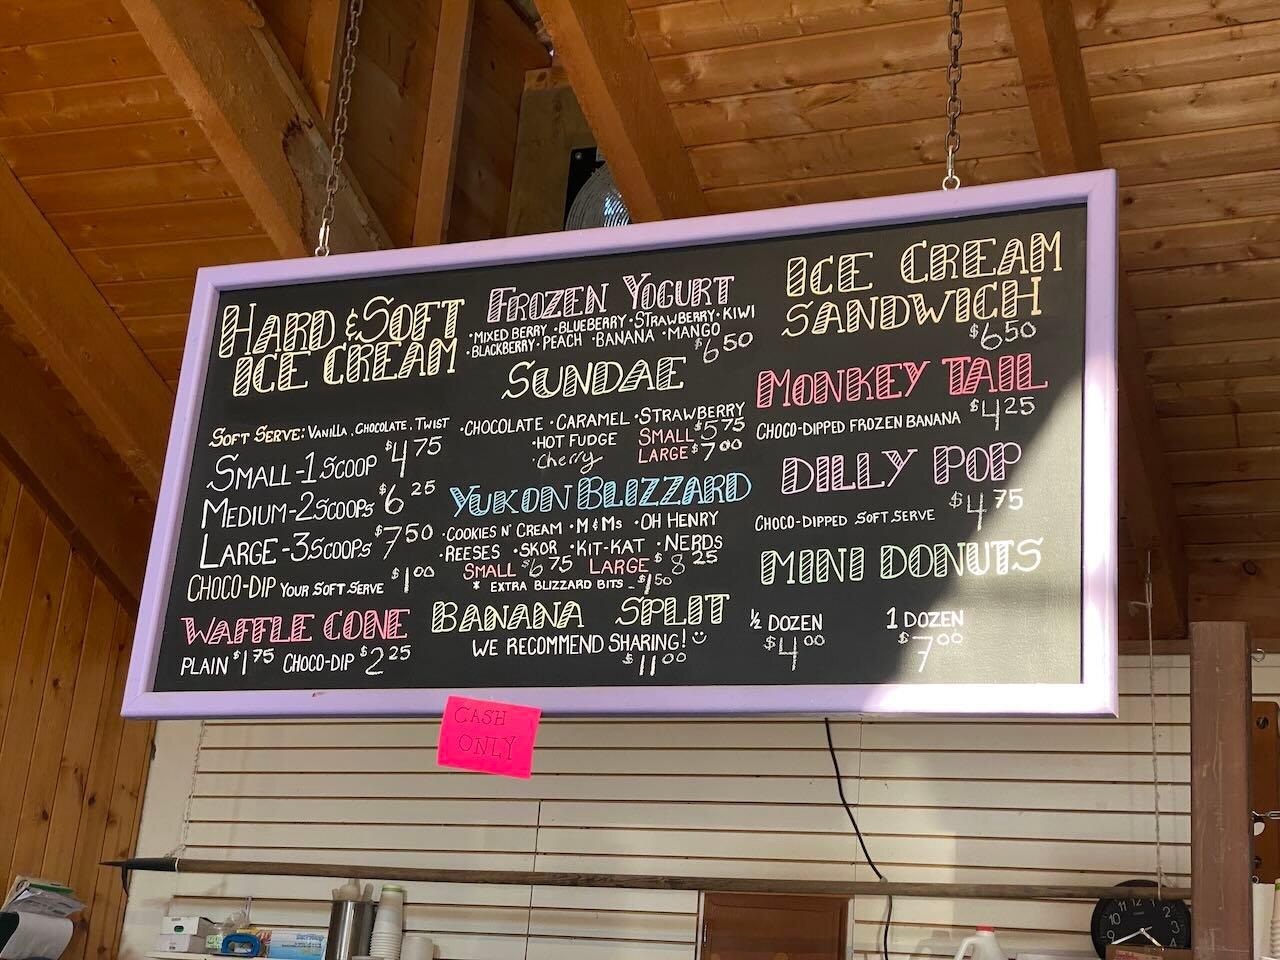 HARD & SOFT
ICE CREAM
SOFT SERVE: VANILLA, CHOCOLATE, TWIST
SMALL-1 SCOOP $4 75
MEDIUM-2 SCOOPS $6 25
LARGE-3 SCOOPS $7 50
CHOCO-DIP YOUR SOFT SERVE $1 00
WAFFLE CONE
PLAIN $1 75 CHOCO-DIP $2 25
FROZEN YOGURT
·MIXED BERRY ·BLUEBERRY ·STRAWBERRY ·KIWI
·BLACKBERRY ·PEACH ·BANANA ·MANGO
$6 50
SUNDAE
·CHOCOLATE ·CARAMEL ·STRAWBERRY
·HOT FUDGE SMALL $5 75
·Cherry LARGE $7 00
YUKON BLIZZARD
·COOKIES N' CREAM ·M&Ms ·OH HENRY
·REESES ·SKOR ·KIT-KAT ·NERDS
SMALL $6 75 LARGE $8 25
* EXTRA BLIZZARD BITS - $1 50
BANANA SPLIT
WE RECOMMEND SHARING! ☺
$11 00
ICE CREAM
SANDWICH
$6 50
MONKEY TAIL
CHOCO-DIPPED FROZEN BANANA $4 25
DILLY POP
CHOCO-DIPPED SOFT SERVE $4 75
MINI DONUTS
½ DOZEN 1 DOZEN
$4 00 $7 00
CASH
ONLY
11 12 1
2
3
4
8